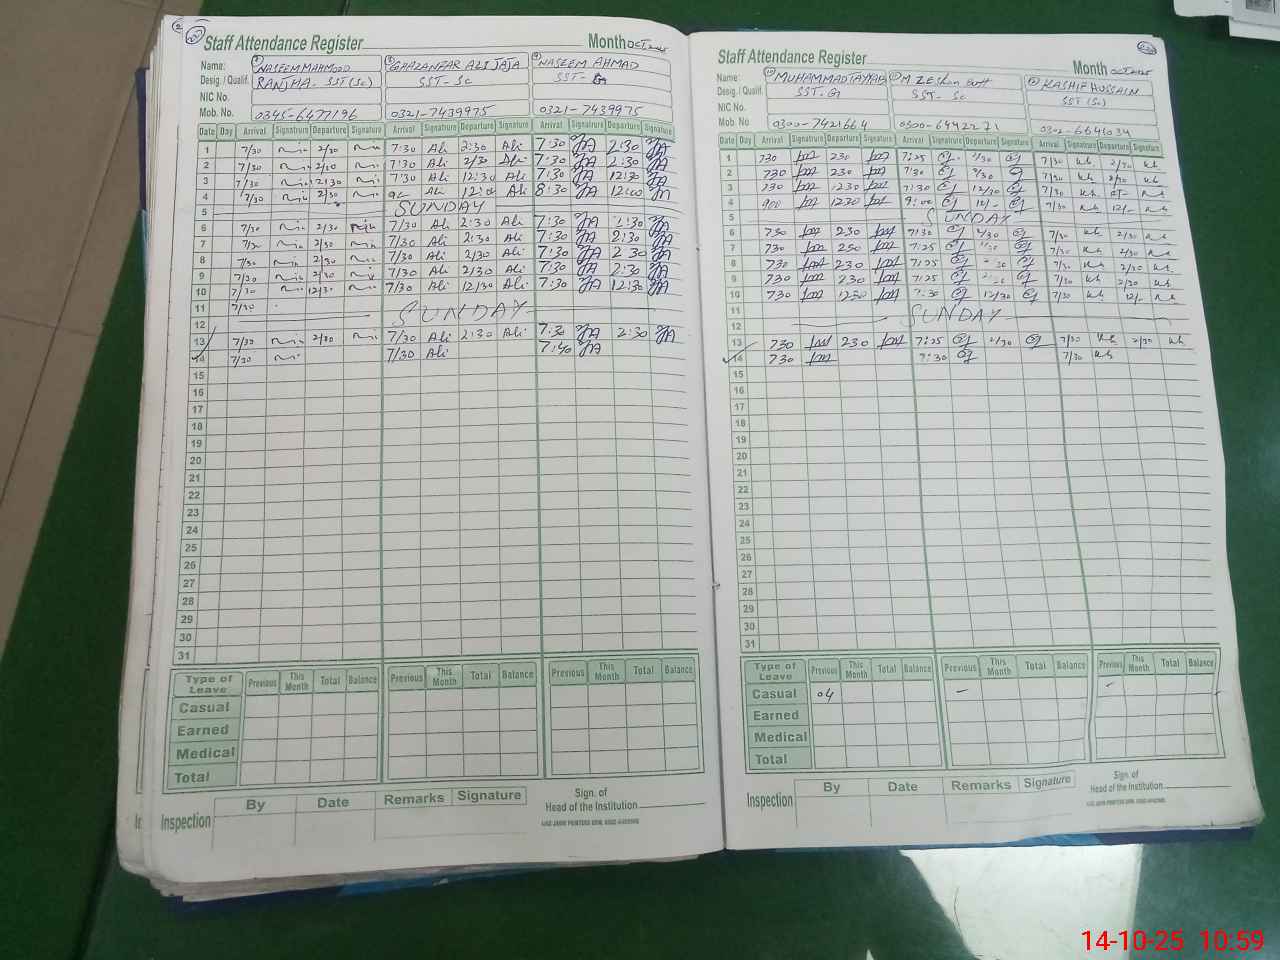 Staff Attendance Register Month OCT. 2025
Name: NASEEM MAHMOOD GHAZANFAR ALI JAJA NASEEM AHMAD
Desig. / Qualif. RANJHA. SST (Sc) SST- Sc SST- G
NIC No.
Mob. No. 0345-6477196 0321-7439975 0321-7439975
Date Day Arrival Signatrure Departure Signature Arrival Signatrure Departure Signature Arrival Signatrure Departure Signature
1 7/30 2/30 7:30 Ali 2:30 Ali 7:30 2:30
2 7/30 2/30 7:30 Ali 2/30 Ali 7:30 2:30
3 7/30 2:30 7:30 Ali 12:30 Ali 7:30 12:30
4 7/30 2/30 Ali Ali 8:30 12:00
5 SUNDAY
6 7/30 2/30 7/30 Ali 2:30 Ali 7:30
7 7/30 2/30 7/30 Ali 2:30 Ali 7:30 2:30
8 7/30 2/30 7/30 Ali 2/30 Ali 7:30 2:30
9 7/30 2/30 7/30 Ali 2/30 Ali 7:30 2:30
10 7/30 12/30 7/30 Ali 12/30 Ali 7:30 12:30
11 7/30
12 SUNDAY
13 7/30 2/30 7/30 Ali 2:30 Ali 7:30 2:30
14 7/30 7/30 Ali 7:40
15
16
17
18
19
20
21
22
23
24
25
26
27
28
29
30
31
Type of Leave Previous This Month Total Balance Previous This Month Total Balance Previous This Month Total Balance
Casual
Earned
Medical
Total
Inspection By Date Remarks Signature Sign. of Head of the Institution
Staff Attendance Register Month OCT 2025
Name: MUHAMMAD TAYYAB M ZEshan Butt KASHIF HUSSAIN
Desig. / Qualif. SST. G SST- Sc SST (Sc)
NIC No.
Mob. No 0300-7421664 0300-6442271 0302-6646034
Date Day Arrival Signatrure Departure Signature Arrival Signatrure Departure Signature Arrival Signatrure Departure Signature
1 730 230 7:25 2/30 7/30 2/30
2 730 230 7:30 2/30 7/30 2/30
3 730 1230 7:30 12/30 7/30
4 900 1230 9:00 12/- 7/30 12/-
5 SUNDAY
6 730 230 7:30 2/30 7/30 2/30
7 730 230 7:25 7/30 2/30
8 730 230 7:25 7/30 2/30
9 730 230 7:25 7/30 2/30
10 730 1230 7:30 12/30 7/30 12/-
11
12 SUNDAY
13 730 230 7:25 2/30 7/30 2/30
14 730 7:30 7/30
15
16
17
18
19
20
21
22
23
24
25
26
27
28
29
30
31
Type of Leave Previous This Month Total Balance Previous This Month Total Balance Previous This Month Total Balance
Casual 04 - -
Earned
Medical
Total
Inspection By Date Remarks Signature Sign. of Head of the Institution
14-10-25 10:59